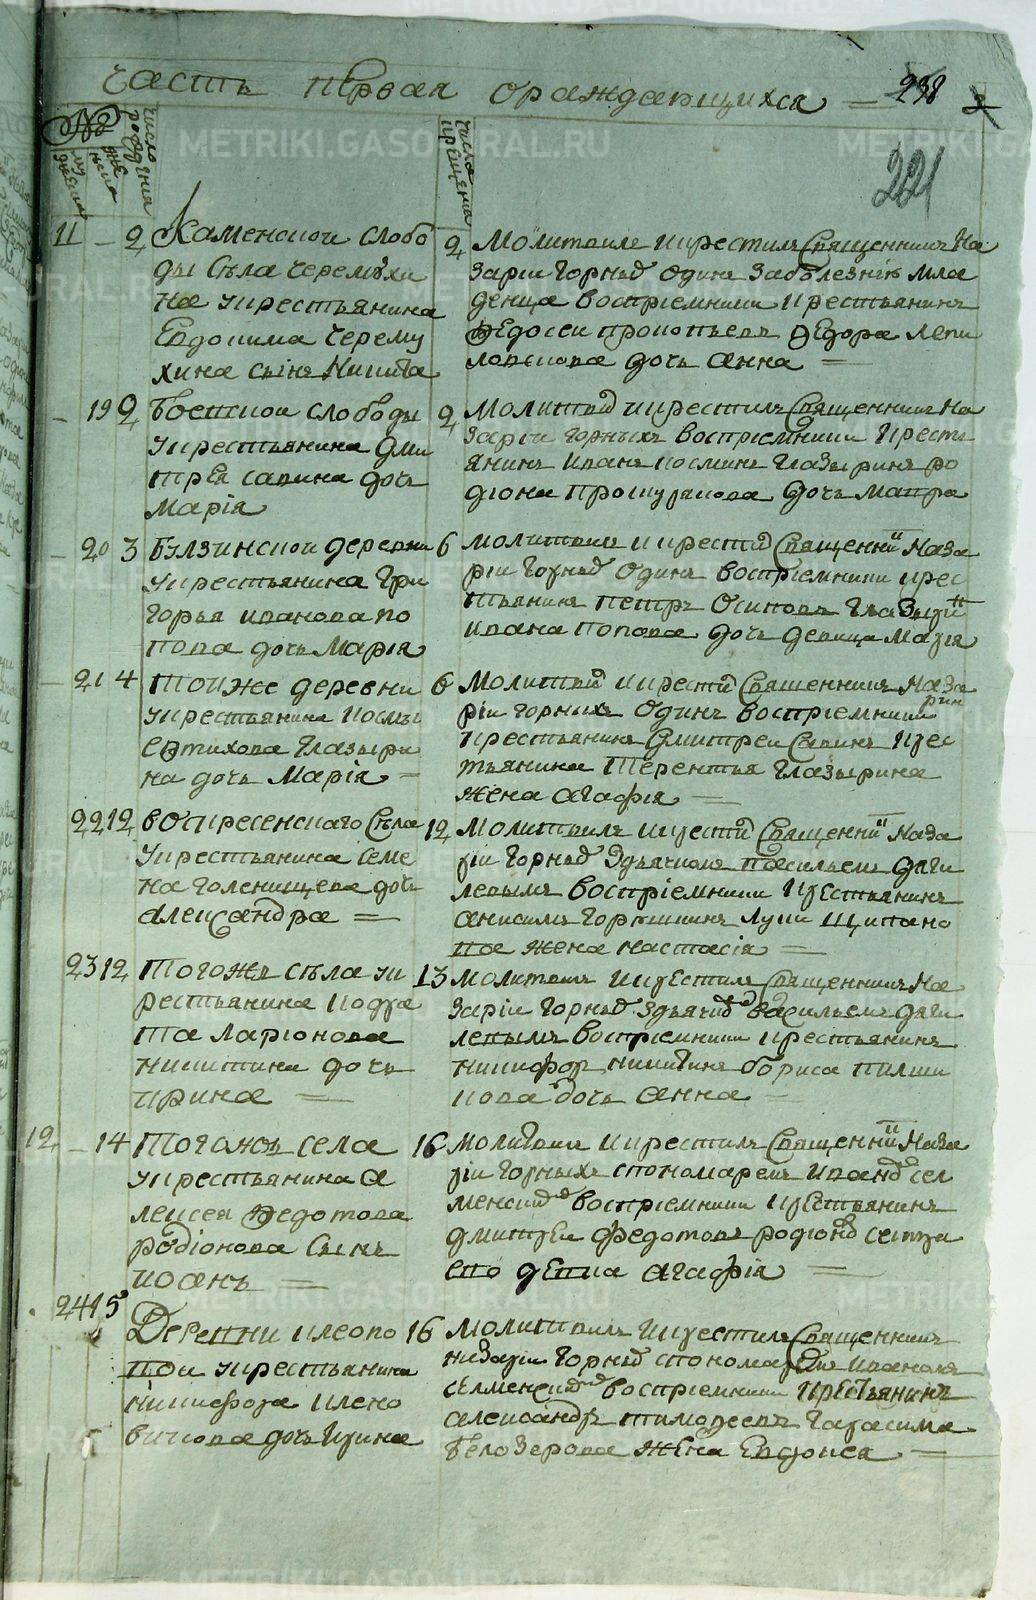 METRIKI.GASO-URAL.RU
часть первая о раждающихся — 238
221
№
число рождения
число крещения
11 — 2 Каменской слобо
ды села черемухи
на у крестьянина
Евдокима черему
хина сынъ Никита
2 Молитвилъ и крестилъ Священникъ На
зарій Горныхъ одинъ за болезнію мла
денца воспріемники крестьянинъ
Федосеи прокопьевъ Федора лепи
дочь анна —
— 19 2 слободы
у крестьянина дми
трея савина дочь
Марія
2 Молитвилъ и крестилъ Священникъ На
зарій Горныхъ воспріемники кресть
янинъ иванъ козминъ Глазыринъ ро
діона дочь Мавра
— 20 3 Булзинской деревни
у крестьянина Гри
горья иванова по
пова дочь Марія
6 Молитвилъ и крестилъ Священникъ Наза
рій Горныхъ одинъ воспріемники крес
тьянинъ петръ Осиповъ Глазыринъ
ивана попова дочь девица Марія
— 21 4 тои же деревни
у крестьянина козмы
Евтихова Глазыри
на дочь Марія —
6 Молитвилъ и крестилъ Священникъ Наза
рій Горныхъ Одинъ воспріемники
крестьянинъ Дмитреи Савинъ крес
тьянина Терентья Глазырина
жена агафія —
22 12 воскресенскаго Села
у крестьянина семе
на голенищева дочь
александра —
12 Молитвилъ и крестилъ Священникъ Наза
рій Горныхъ З дьячкомъ василіемъ
воспріемники крестьянинъ
анисимъ Горшкинъ луки
жена настасія —
23 12 тогожъ села у к
рестьянина кодра
та Ларіонова
никитина дочь
ирина —
13 Молитвилъ и крестилъ Священникъ На
зарій Горныхъ З дьячкомъ василіемъ
воспріемники крестьянинъ
никифоръ никитинъ бориса
дочь анна —
12 — 14 тогожъ села
у крестьянина а
лексея Федотова
родіонова сынъ
иоанъ —
16 Молитвилъ и крестилъ Священникъ Наза
рій Горныхъ спономаремъ иваномъ сел
менскимъ воспріемники крестьянинъ
дмитреи федотовъ родіоновъ
ево агафія —
24 15 Деревни клеопо
вои у крестьянина
никифора клено
дочь Ирина
16 Молитвилъ и крестилъ Священникъ
назарій Горныхъ спономаремъ иваномъ
селменскимъ воспріемники крестьянинъ
александръ тимофеевъ Гарасима
белозерова жена Евдокея —